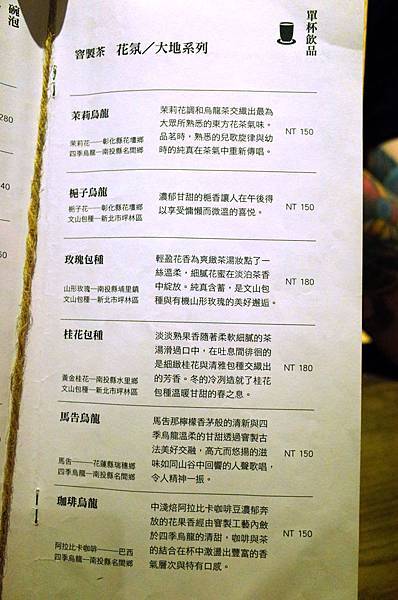 單杯飲品
窨製茶 花氛／大地系列
茉莉烏龍
茉莉花──彰化縣花壇鄉
四季烏龍─南投縣名間鄉
茉莉花調和烏龍茶交織出最為
大眾所熟悉的東方花茶氣味。
品茗時，熟悉的兒歌旋律與幼
時的純真在茶氣中重新傳唱。
NT 150
梔子烏龍
梔子花──彰化縣花壇鄉
文山包種─新北市坪林區
濃郁甘甜的梔香讓人在午後得
以享受慵懶而微溫的喜悅。
NT 150
玫瑰包種
山形玫瑰─南投縣埔里鎮
文山包種─新北市坪林區
輕盈花香為爽緻茶湯妝點了一
絲溫柔，細膩花蜜在淡泊茶香
中綻放。純真含蓄，是文山包
種與有機山形玫瑰的美好邂逅。
NT 180
桂花包種
黃金桂花─南投縣水里鄉
文山包種─新北市坪林區
淡淡熟果香隨著柔軟細膩的茶
湯滑過口中，在吐息間徘徊的
是細緻桂花與清雅包種交織出
的芳香。冬的冷冽造就了桂花
包種溫暖甘甜的春之息。
NT 180
馬告烏龍
馬告───花蓮縣瑞穗鄉
四季烏龍─南投縣名間鄉
馬告那檸檬香茅般的清新與四
季烏龍溫柔的甘甜透過窨製古
法美好交融，高亢而悠揚的滋
味如同山谷中回響的人聲歌唱，
令人精神一振。
NT 150
珈琲烏龍
阿拉比卡咖啡──巴西
四季烏龍─南投縣名間鄉
中淺焙阿拉比卡咖啡豆濃郁奔
放的花果香經由窨製工藝內斂
於四季烏龍的清甜，咖啡與茶
的結合在杯中激盪出豐富的香
氣層次與特有口感。
NT 150
碗泡
280
40
60